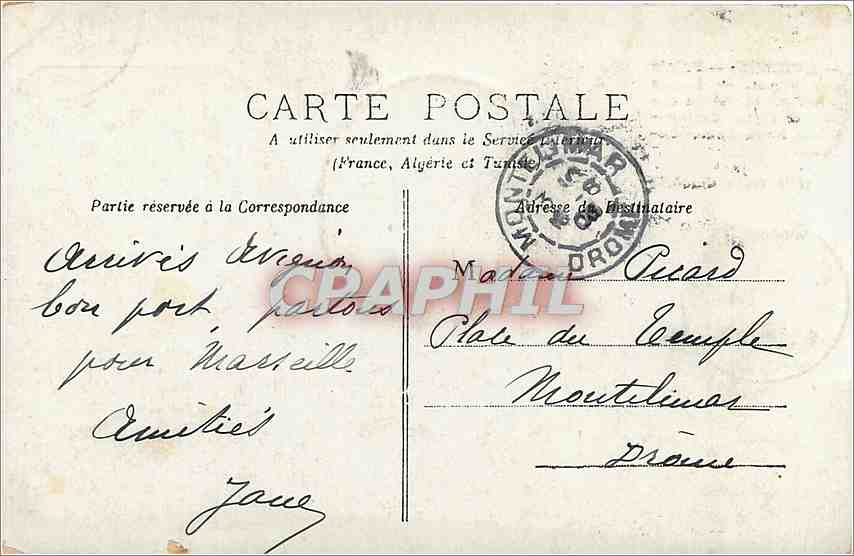 CARTE POSTALE
A utiliser seulement dans le Service Intérieur
(France, Algérie et Tunisie)
MONTELIMAR
DROME
Partie réservée à la Correspondance
Arrivés Avignon
bon port partons
pour Marseille
Amitiés
Adresse du Destinataire
Madame Picard
Place du Temple
Montelimar
Drôme
CPAPHIL